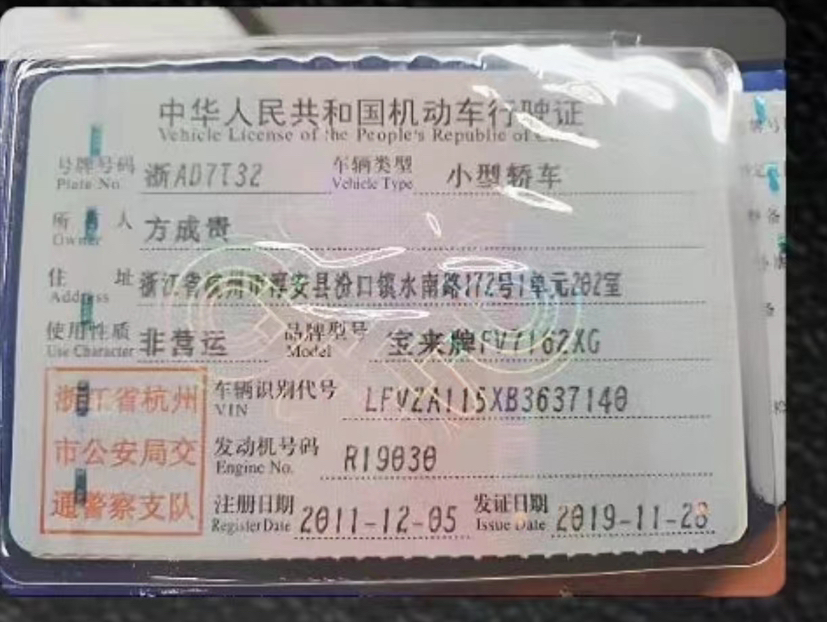 中华人民共和国机动车行驶证
Vehicle License of the People's Republic of
号牌号码 浙AD7T32 车辆类型 小型轿车
Plate No. Vehicle Type
所 人 方成贵
Owner
住 址 浙江省杭州市淳安县汾口镇水南路172号1单元202室
Address
使用性质 非营运 品牌型号 宝来牌FV7162XG
Use Character Model
浙江省杭州
市公安局交
通警察支队
车辆识别代号 LFV2A115XB3637140
VIN
发动机号码 R19030
Engine No.
注册日期 2011-12-05 发证日期 2019-11-28
Register Date Issue Date